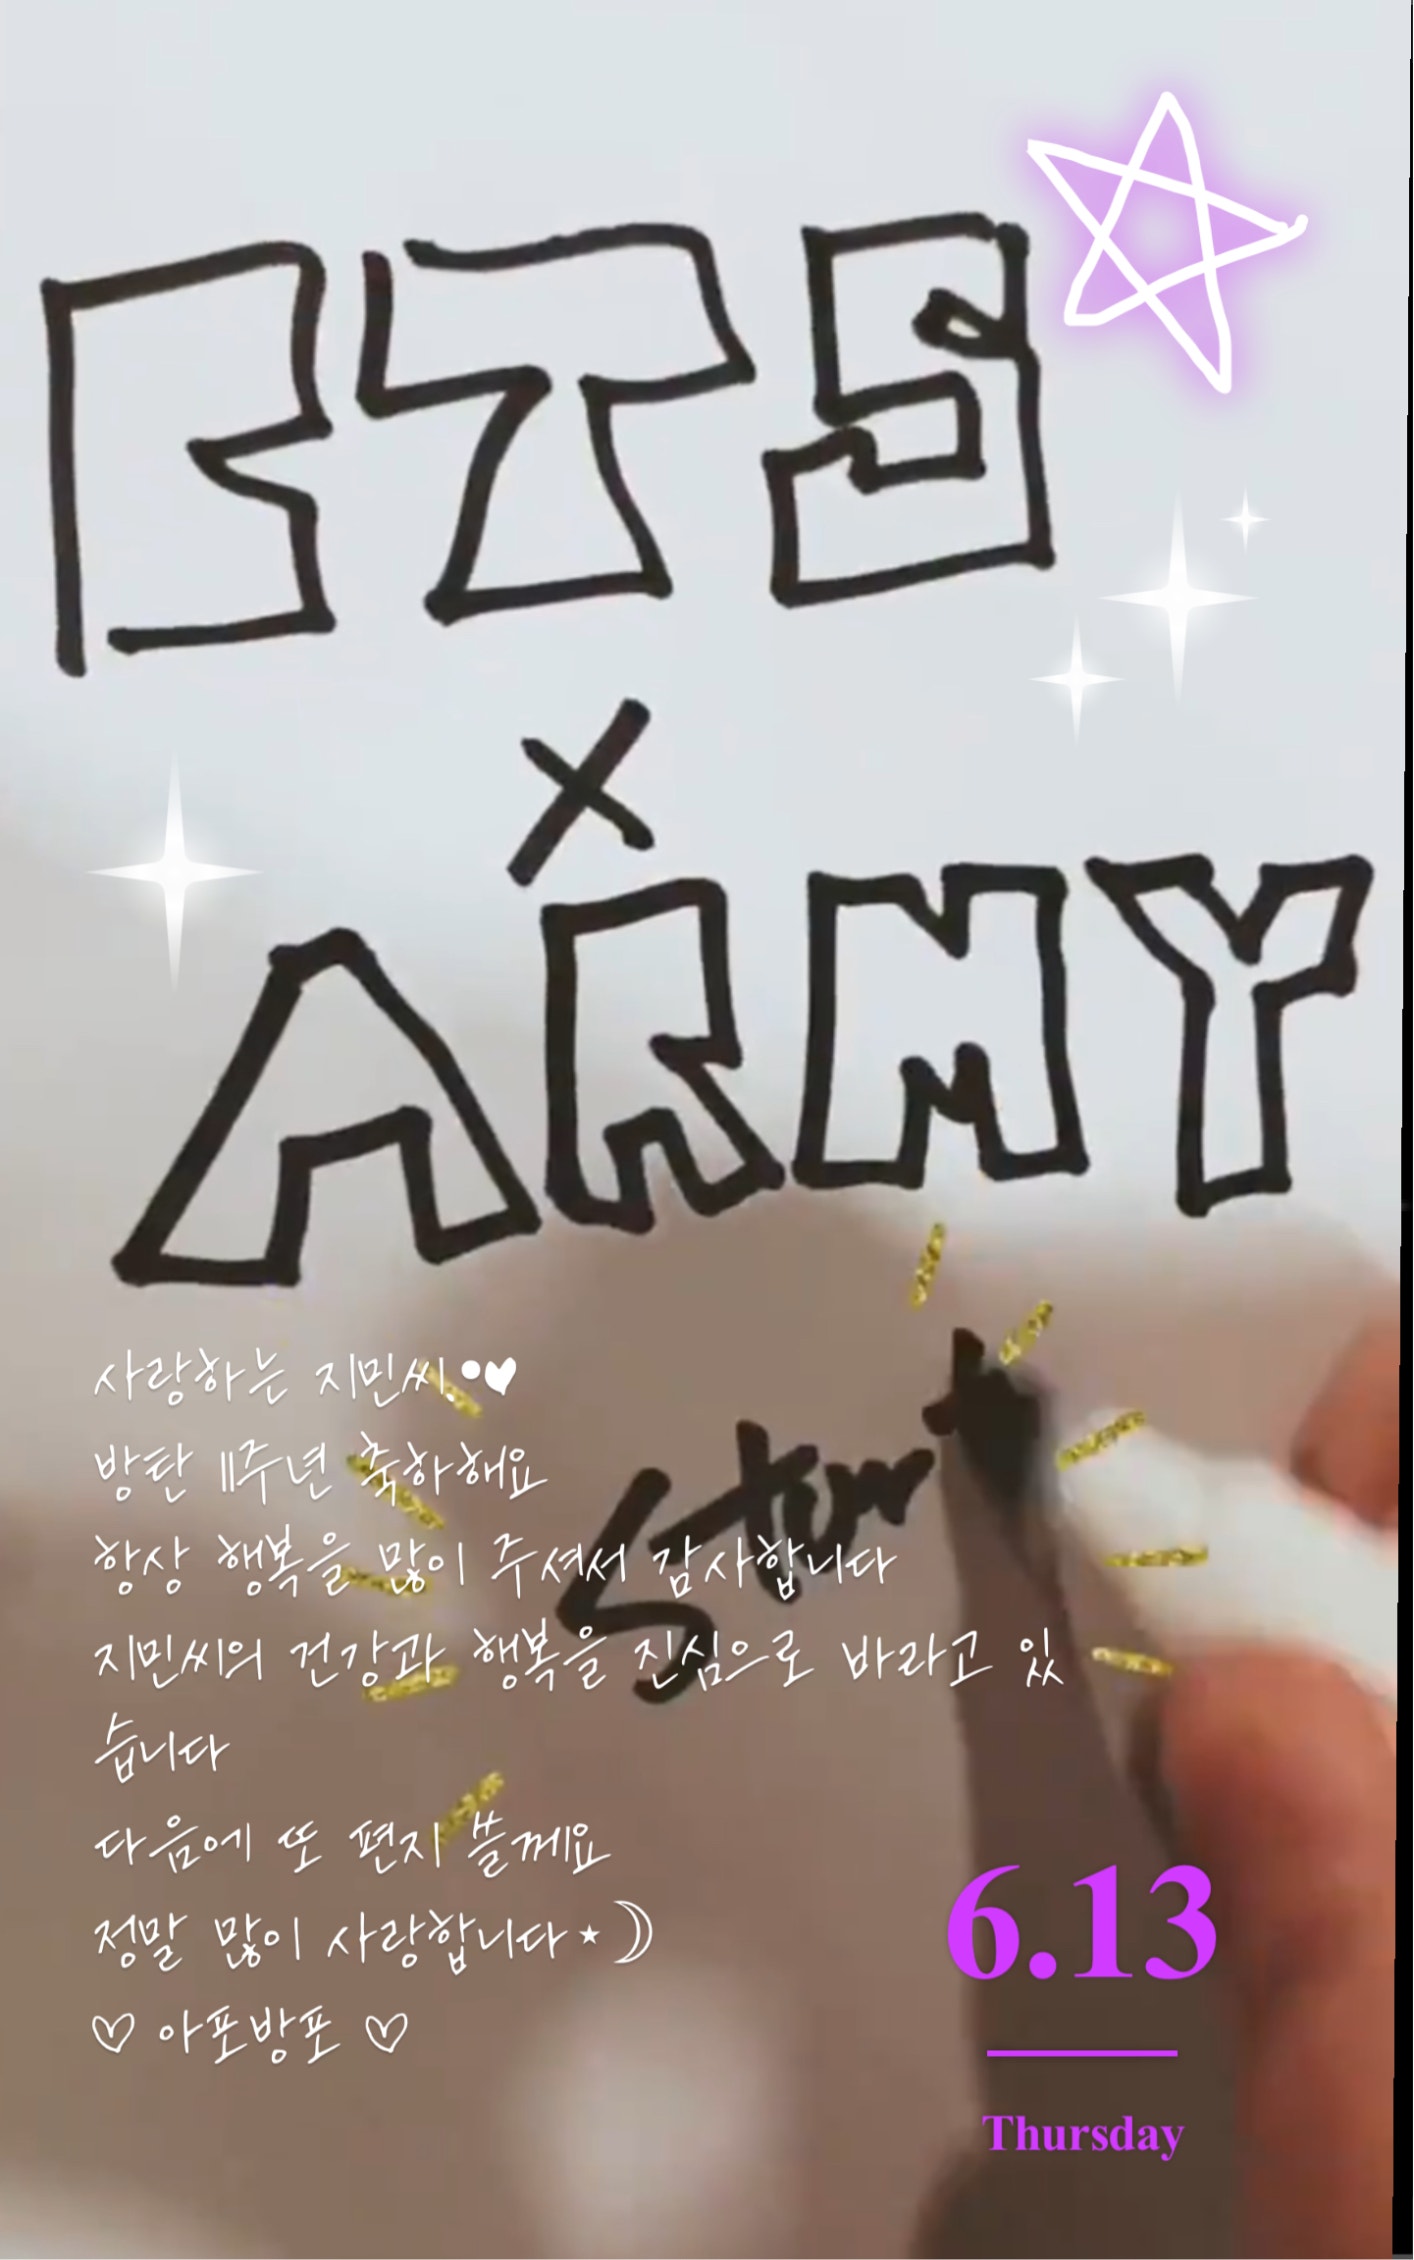 BTS
×
ARMY
사랑하는 지민씨.•♥
방탄 11주년 축하해요
항상 행복을 많이 주셔서 감사합니다
지민씨의 건강과 행복을 진심으로 바라고 있
습니다
다음에 또 편지 쓸께요
정말 많이 사랑합니다⋆☽
♡ 아포방포 ♡
6.13
Thursday